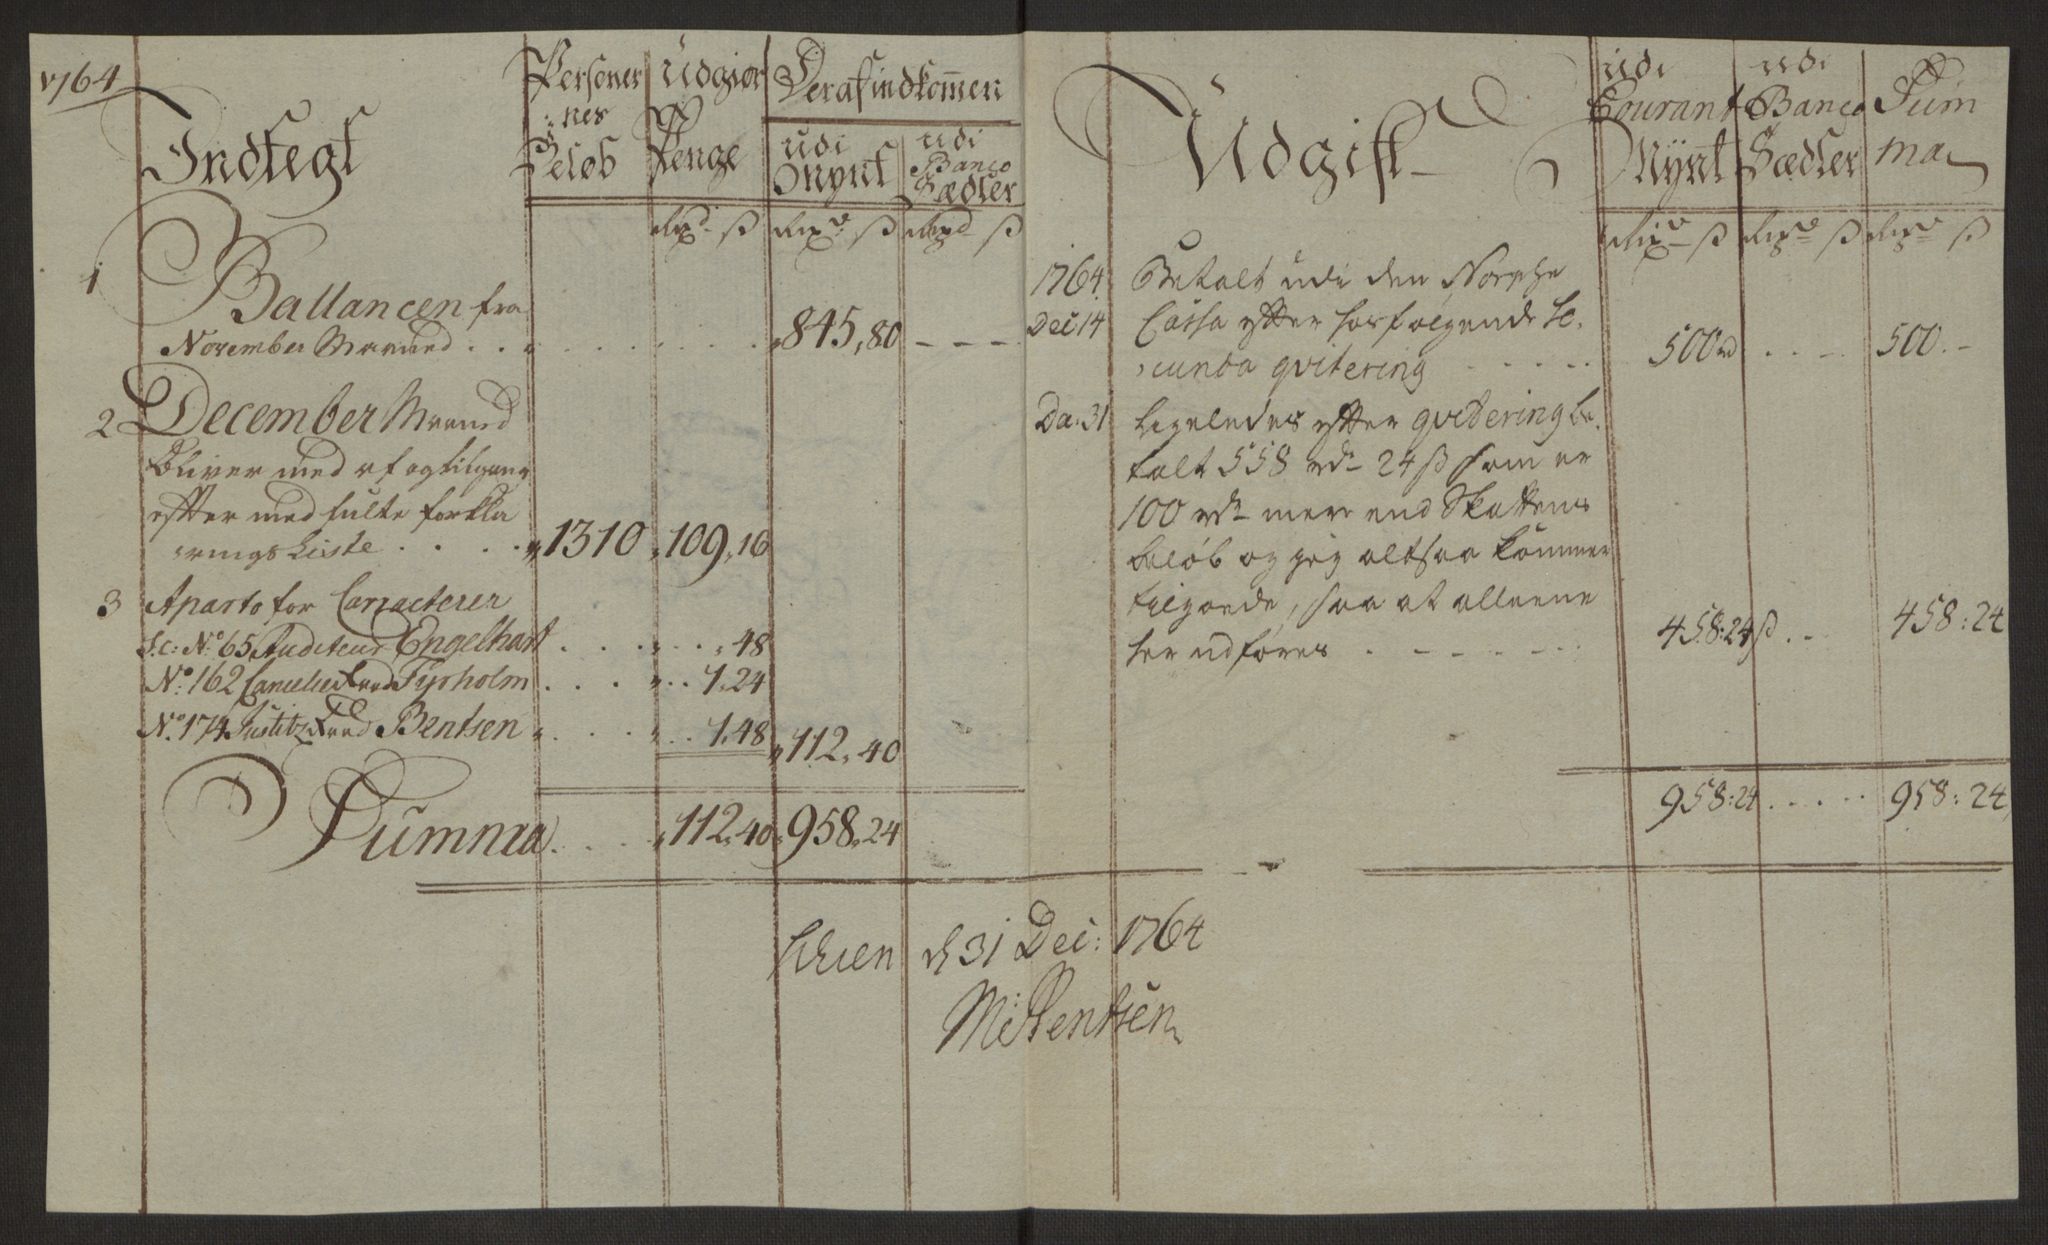 1764
Indtegt
Personer
nes
Beløb
Udgiør
Penge
Deraf indkom̄en
udi
Mynt
udi
Banco
Sædler
Rixd ß Rixd ß Rixd ß
1 Ballancen fra
November Maaned . . . 845,80 - - -
2 December Maaned
bliver med af og tilgang
efter medfulte forkla
rings Liste . . . . 1310 109,16
3 Aparto for Caracterer
Sc: No: 65 Auditeur Engelhart . . . 48
No: 162 Cancelie Raad Tyrholm . . . 1.24
No: 174 Justitz Raad Bentsen . . . 1,48 112,40
Summa . . . 112,40 958,24
Udgift
udi
Courant
Mynt
udi
Banco
Sædler
Sum
ma
Rixd ß Rixd ß Rixd ß
1764 Betalt udi den Norske
Dec: 14 Cassa efter hosfølgende Se,
cunda qvitering . . . 500 rd . . - 500. -
Da: 31 ligeledes efter qvitering be,
talt 558 rdr 24 ß som er
100 rdr mere end Skattens
beløb og jeg altsaa kommer
tilgoede, saa at alleene
her udføres . - - - 458:24 ß . - 458:24
958:24 . . . . 958:24
Schien d 31 Dec: 1764
M: Bentsen